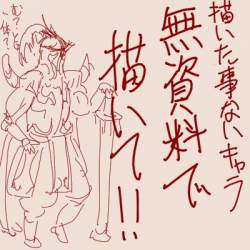 描いた事ないキャラ
無資料で
描いて!!